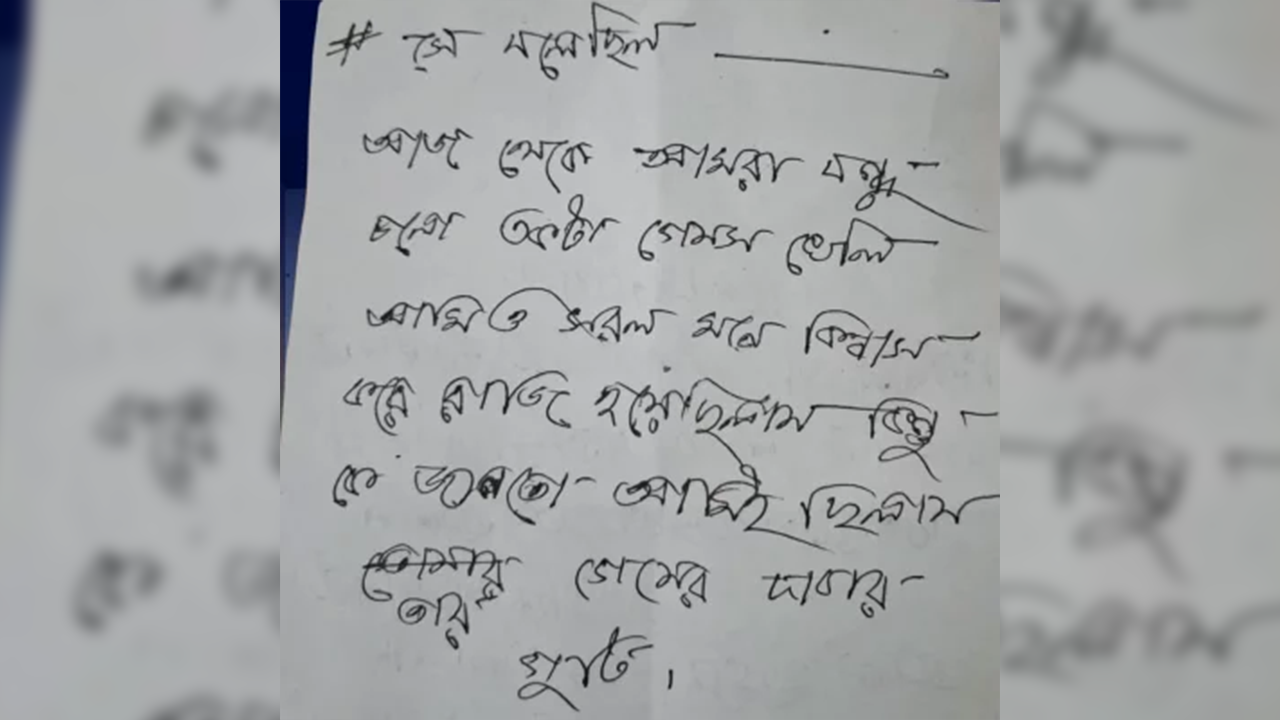 # সে বলেছিল ———
আজ থেকে আমরা বন্ধু
চলো একটা গেমস খেলি
আমিও সরল মনে বিশ্বাস
করে রাজি হয়েছিলাম কিন্তু
কে জানতো আমিই ছিলাম
তোমার গেমের দাবার
তার
গুটি।